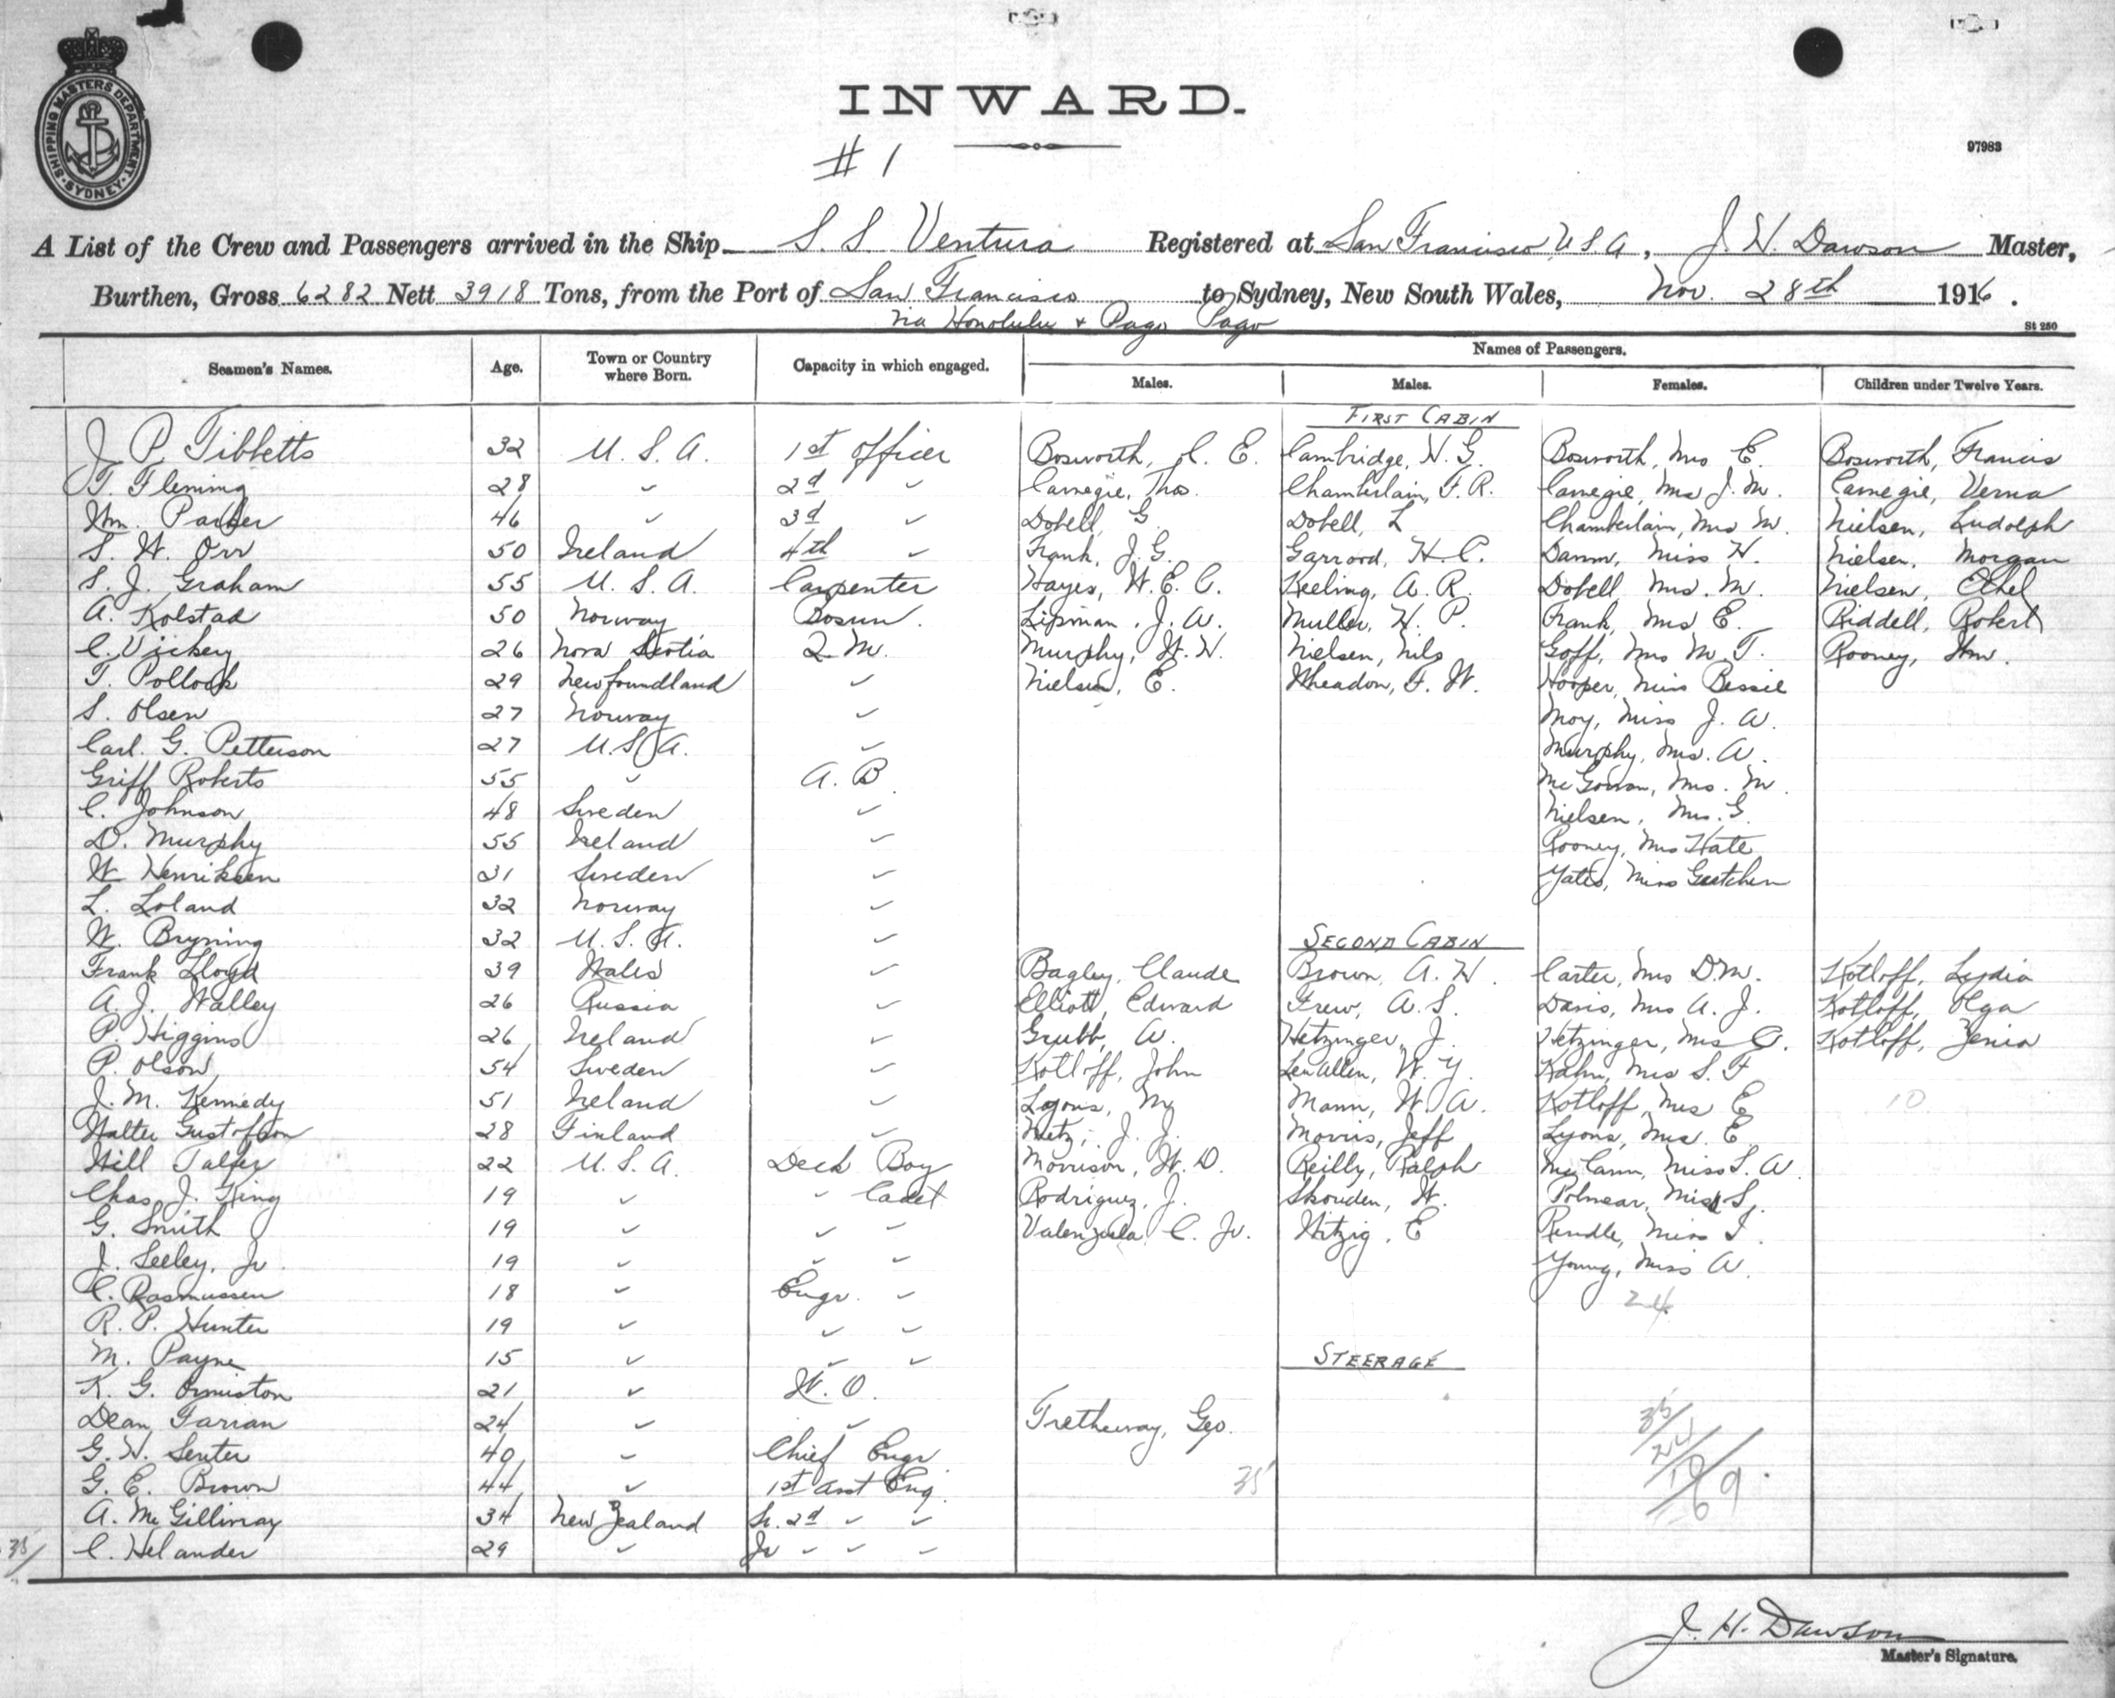 SHIPPING MASTERS DEPARTMENT
SYDNEY
INWARD.
# 1
97983
A List of the Crew and Passengers arrived in the Ship S. S. Ventura Registered at San Francisco, U S A, J. H. Dawson Master,
Burthen, Gross 6282 Nett 3918 Tons, from the Port of San Francisco to Sydney, New South Wales, Nov. 28th 1916.
via Honolulu & Pago Pago
St 250
Names of Passengers.
Seamen's Names. Age. Town or Country where Born. Capacity in which engaged. Males. Males. Females. Children under Twelve Years.
FIRST CABIN
J. P. Tibbetts 32 U. S. A. 1st officer Bosworth, C. E. Cambridge, H. G. Bosworth, Mrs E. Bosworth, Francis
T. Fleming 28 ✓ 2d ✓ Carnegie, Thos. Chamberlain, F. R. Carnegie, Mrs J. M. Carnegie, Verna
Wm. Parker 46 ✓ 3d ✓ Dobell, G. Dobell, L Chamberlain, Mrs M. Nielsen, Ludolph
S. W. Orr 50 Ireland 4th ✓ Frank, J. G. Garrood, H. C. Damm, Miss H. Nielsen, Morgan
S. J. Graham 55 U. S. A. Carpenter Hayes, W. E. C. Keeling, A. R. Dobell, Mrs. M. Nielsen, Ethel
A. Kolstad 50 Norway Bosun. Lipman, J. A. Muller, H. P. Frank, Mrs E. Riddell, Robert
C. Vickery 26 Nova Scotia Q. M. Murphy, W. H. Nielsen, Nils Goff, Mrs M. T. Rooney, Wm.
T. Pollock 29 Newfoundland ✓ Nielsen, E. Wheadon, F. W. Hooper, Miss Bessie
S. Olsen 27 Norway ✓ Moy, Miss J. A.
Carl. G. Petterson 27 U. S. A. ✓ Murphy, Mrs. A.
Griff Roberts 55 ✓ A. B. McGowan, Mrs. M.
C. Johnson 48 Sweden ✓ Nielsen, Mrs. G.
D. Murphy 55 Ireland ✓ Rooney, Mrs Kate
W Henriksen 31 Sweden ✓ Yates, Miss Gretchen
L. Loland 32 Norway ✓
W. Bryning 32 U. S. A. ✓ SECOND CABIN
Frank Lloyd 39 Wales ✓ Bagley, Claude Brown, A. H. Carter, Mrs D. M. Kotloff, Lydia
A. J. Walley 26 Russia ✓ Elliott, Edward Frew, A. S. Davis, Mrs A. J. Kotloff, Olga
P. Higgins 26 Ireland ✓ Grubb, A. Hetzinger, J. Hetzinger, Mrs C. Kotloff, Zenia
P. Olson 54 Sweden ✓ Kotloff, John LenAllen, W. Y. Kahn, Mrs S. F
J. M. Kennedy 51 Ireland ✓ Lyons, M Mann, W. A. Kotloff, Mrs E 10
Walter Gustofson 28 Finland ✓ Metz, J. J. Morris, Jeff Lyons, Mrs. E
Will Talfer 22 U. S. A. Deck Boy Morrison, W. D. Reilly, Ralph McCann, Miss L. A.
Chas. J. King 19 ✓ ✓ Cadet Rodriguez, J. Skouden, W. Polmear, Miss S.
G. Smith 19 ✓ ✓ ✓ Valenzuela C. Jr. Witzig, E Rendle, Miss I.
J. Seeley, Jr. 19 ✓ ✓ ✓ Young, Miss A.
C. Rasmussen 18 ✓ Engr. ✓ 24
R. P. Hunter 19 ✓ ✓ ✓
M. Payne 15 ✓ ✓ ✓ STEERAGE
K. G. Ormiston 21 ✓ W. O.
Dean Farran 24 ✓ ✓ Tretheway, Geo. 35
G. H. Senter 40 ✓ Chief Engr 24
G. E. Brown 44 ✓ 1st asst Eng. 35 10 69.
A. McGillivray 34 New Zealand Sr. 2d ✓ ✓
35 C. Helander 29 ✓ Jr ✓ ✓ ✓
J. H. Dawson
Master's Signature.